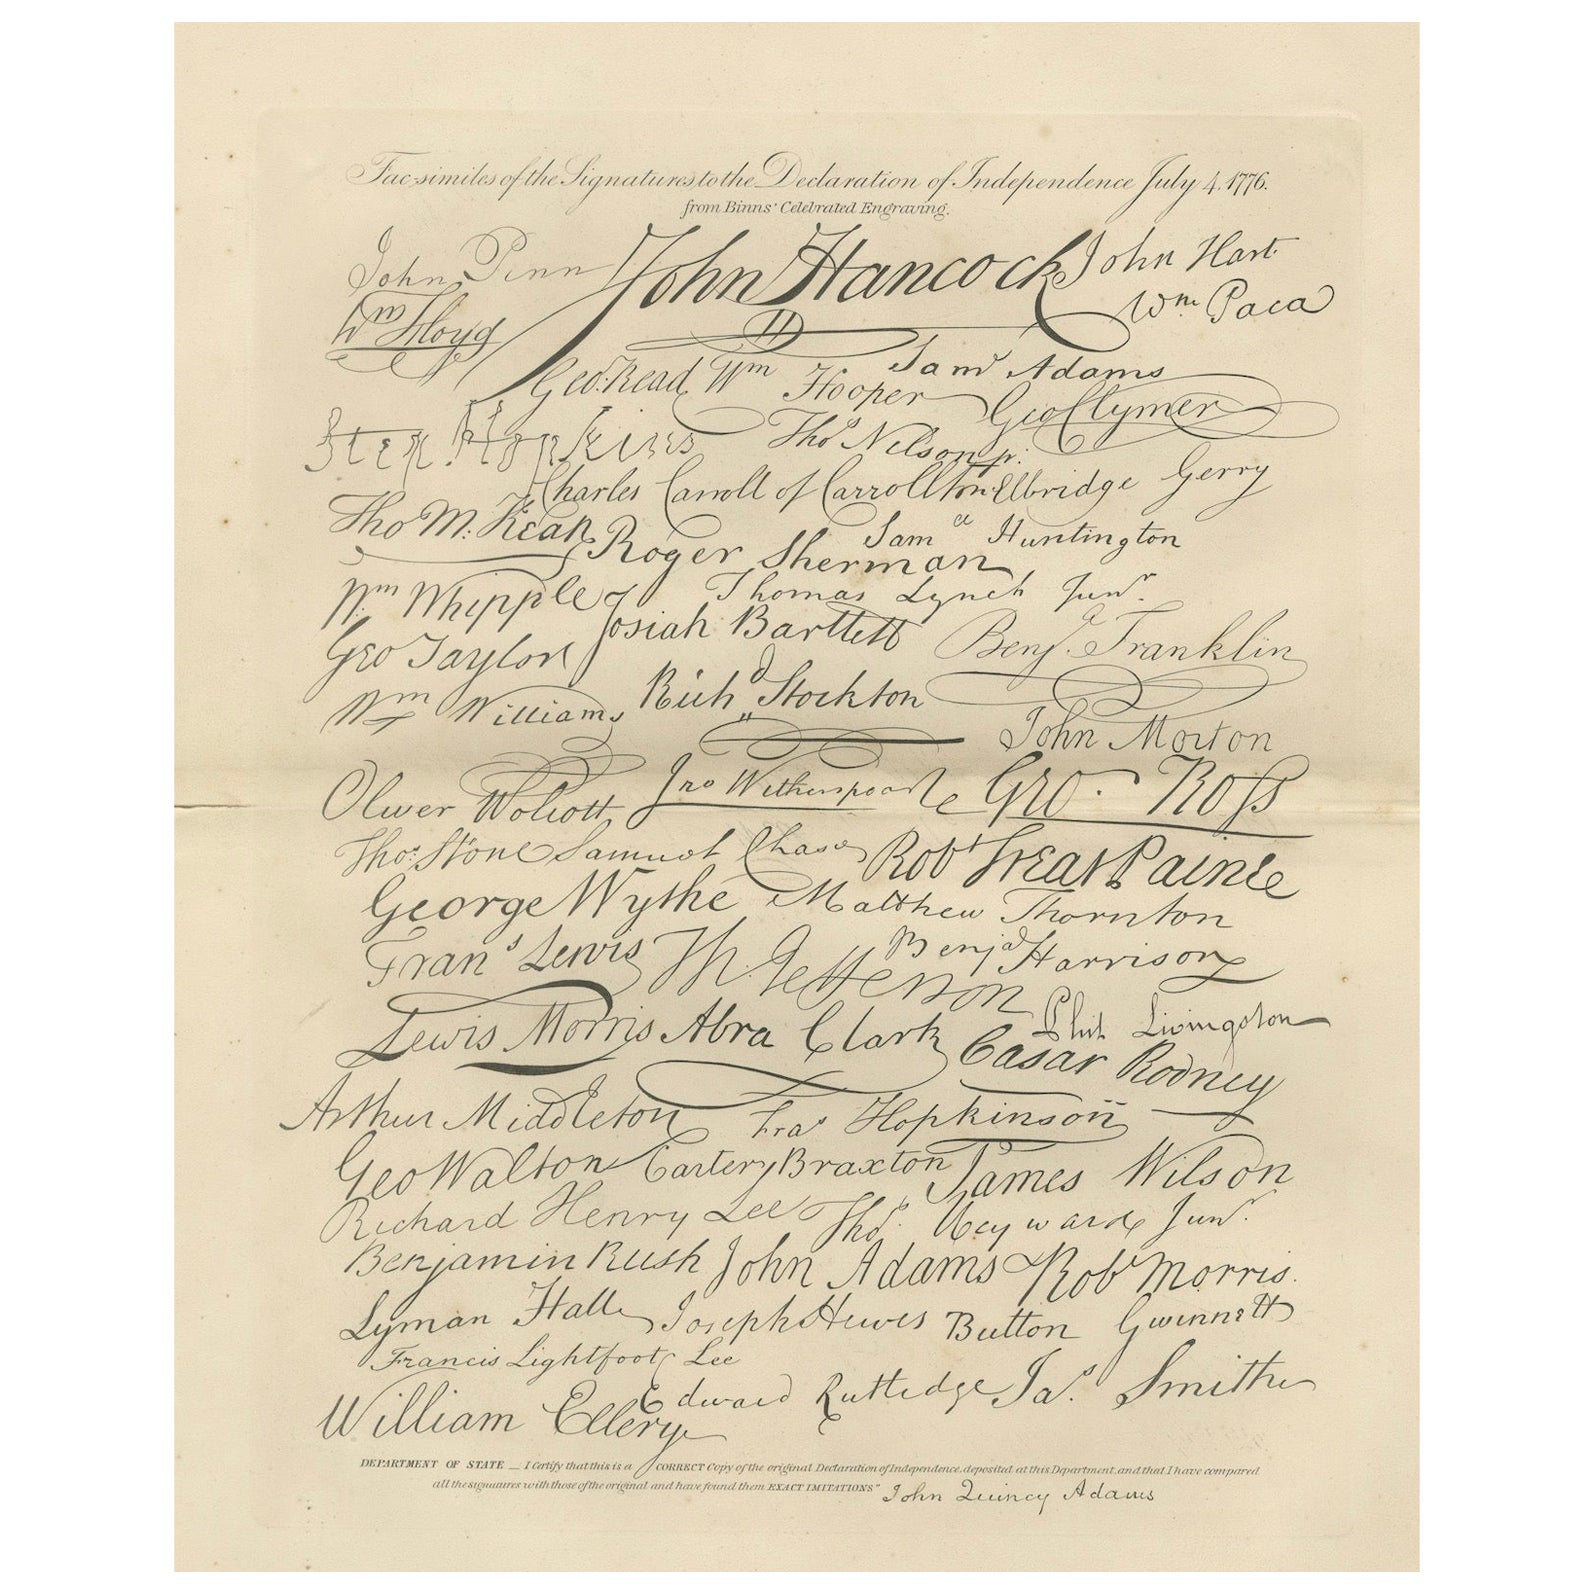 Fac-similes of the Signatures to the Declaration of Independence July 4, 1776.
from Binns' Celebrated Engraving.
John Penn John Hancock John Hart
Wm Floyd Wm Paca
Geo: Read Wm Hooper Saml Adams
Geo Clymer
Step. Hopkins Thos Nelson jr.
Charles Carroll of Carrollton Elbridge Gerry
Tho M: Kean Roger Sherman Saml Huntington
Wm Whipple Thomas Lynch Junr.
Josiah Bartlett Benja. Franklin
Geo Taylor
Wm Williams Richd Stockton
John Morton
Oliver Wolcott Jno Witherspoon Geo. Ross
Thos. Stone Samuel Chase Robt Treat Paine
George Wythe Matthew Thornton
Frans Lewis Th. Jefferson Benja Harrison
Lewis Morris Abra Clark Phil. Livingston
Cæsar Rodney
Arthur Middleton Fras Hopkinson
Geo Walton Carter Braxton James Wilson
Richard Henry Lee Thos. Heyward Junr.
Benjamin Rush John Adams Robt Morris.
Lyman Hall Joseph Hewes Button Gwinnett
Francis Lightfoot Lee
William Ellery Edward Rutledge Jas. Smith
DEPARTMENT OF STATE — I Certify that this is a CORRECT Copy of the original Declaration of Independence, deposited at this Department, and that I have compared
all the signatures with those of the original and have found them EXACT IMITATIONS" John Quincy Adams